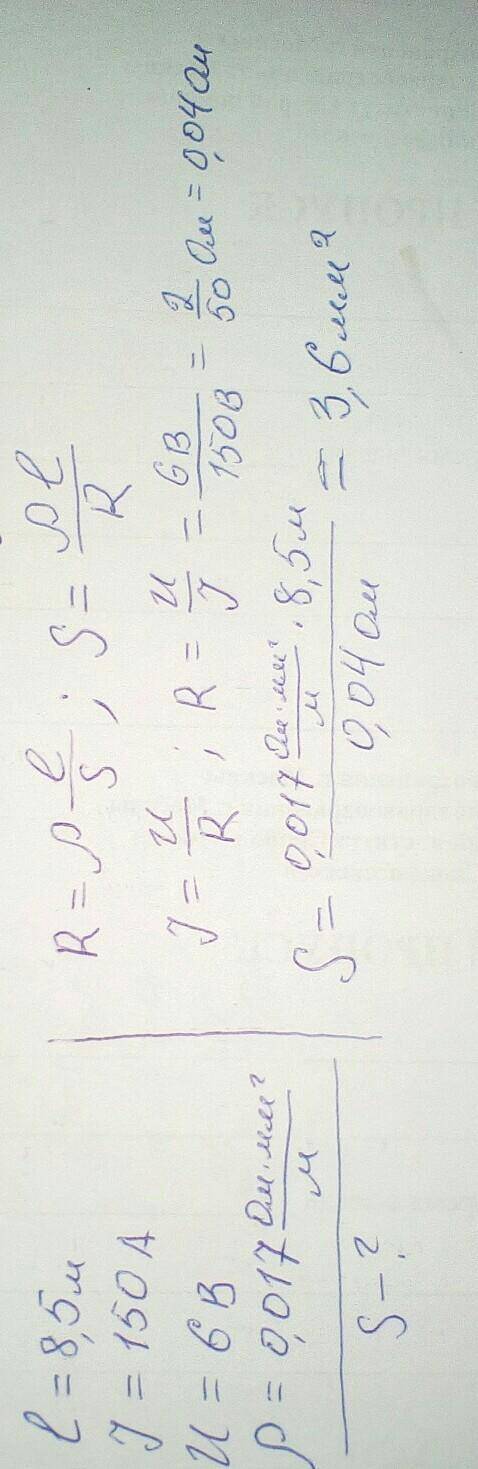 l = 8,5м
I = 150А
U = 6В
ρ = 0,017 Ом·мм²/м
S - ?
R = ρ l/S ; S = ρl/R
I = U/R ; R = U/I = 6В/150В = 2/50 Ом = 0,04 Ом
S = 0,017 Ом·мм²/м · 8,5м / 0,04 Ом = 3,6 мм²